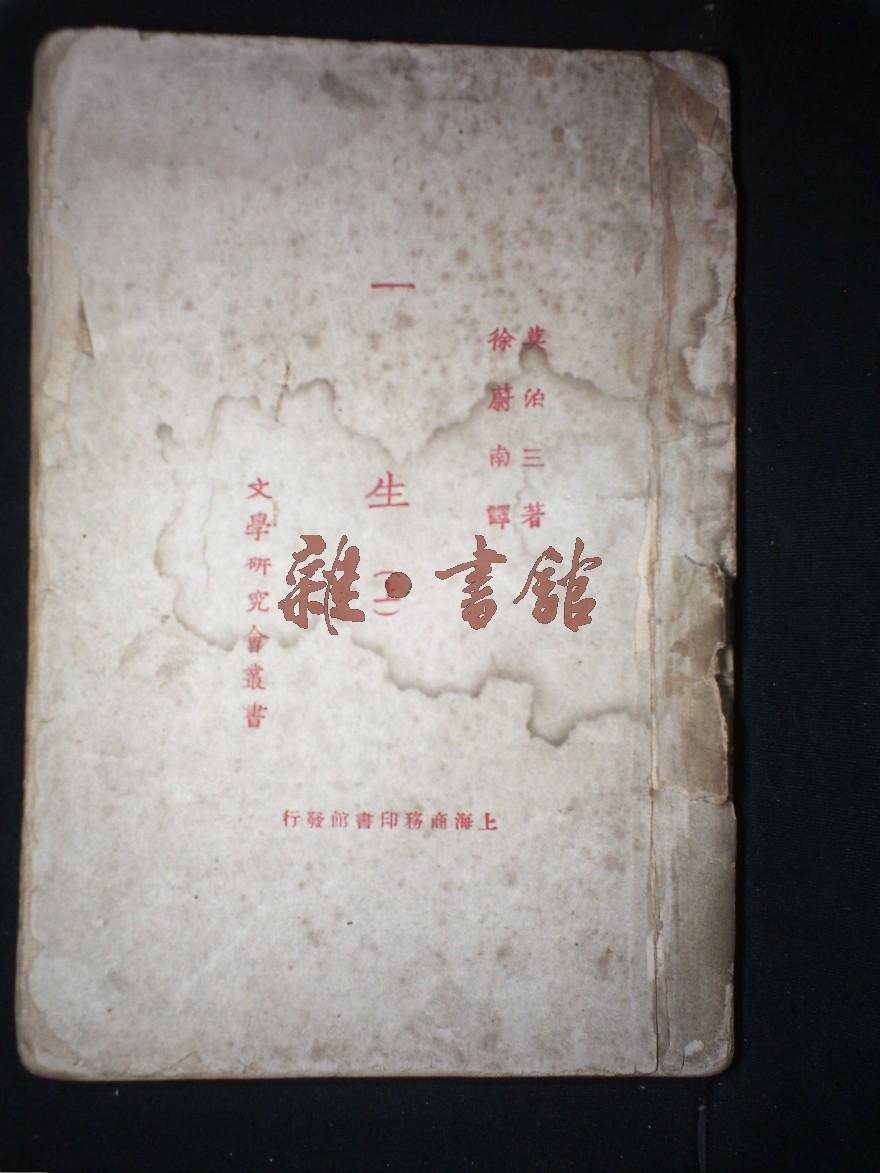 莫泊三著
徐蔚南譯
一生
文學研究會叢書
上海商務印書館發行
雜·書館